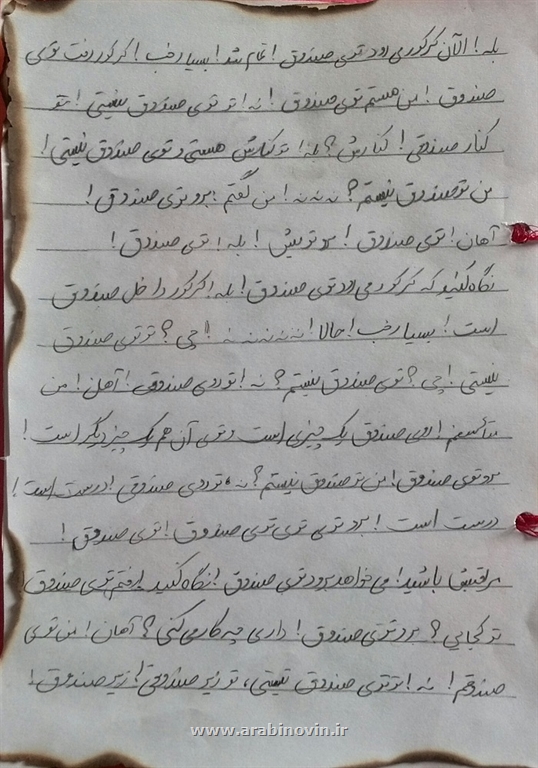 بله! الآن کرکور می‌رود توی صندوق! تمام شد! بسیار خب! کرکور رفت توی
صندوق! من هستم توی صندوق! نه! تو توی صندوق نیستی! تو
کنار صندوقی! کنارش؟ بله! تو کنارش هستی و توی صندوق نیستی!
من تو صندوق نیستم؟ نه نه نه! من گفتم: برو توی صندوق!
آهان! توی صندوق! برو تویش! بله! توی صندوق!
نگاه کنید که کرکور می‌رود توی صندوق! بله! کرکور داخل صندوق
است! بسیار خب! حالا! نه نه نه نه نه! چی؟ تو توی صندوق
نیستی! چی؟ توی صندوق نیستم؟ نه! تو روی صندوقی! آهان! من
متأسفم! روی صندوق یک چیزی است و توی آن هم یک چیز دیگر است!
برو توی صندوق! من تو صندوق نیستم؟ نه، تو روی صندوقی! درست است!
درست است! برو توی توی توی صندوق! توی صندوق!
مراقبش باشید! می‌خواهد برود توی صندوق! نگاه کنید! رفتم توی صندوق!
تو کجایی؟ برو توی صندوق! داری چه کار می‌کنی؟ آهان! من توی
صندوقم! نه! تو توی صندوق نیستی، تو زیر صندوقی! زیر صندوق!
www.arabinovin.ir